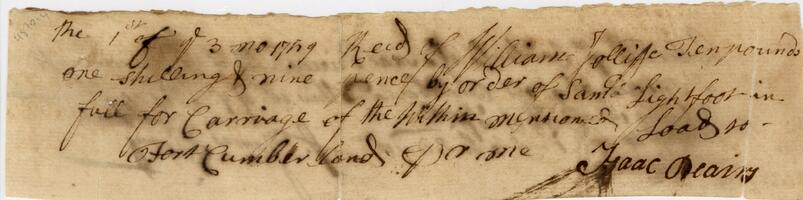 the 1st of ye 3 mo 1759 Recd of William Jolliffe Ten pounds
one shilling & nine pence by order of Saml Lightfoot in
full for Carriage of the Within mentioned Load to
Fort Cumberland Pr me
Isaac